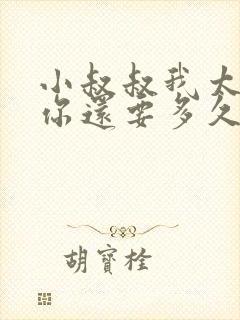 小叔叔我太
你還要多久
胡寶栓